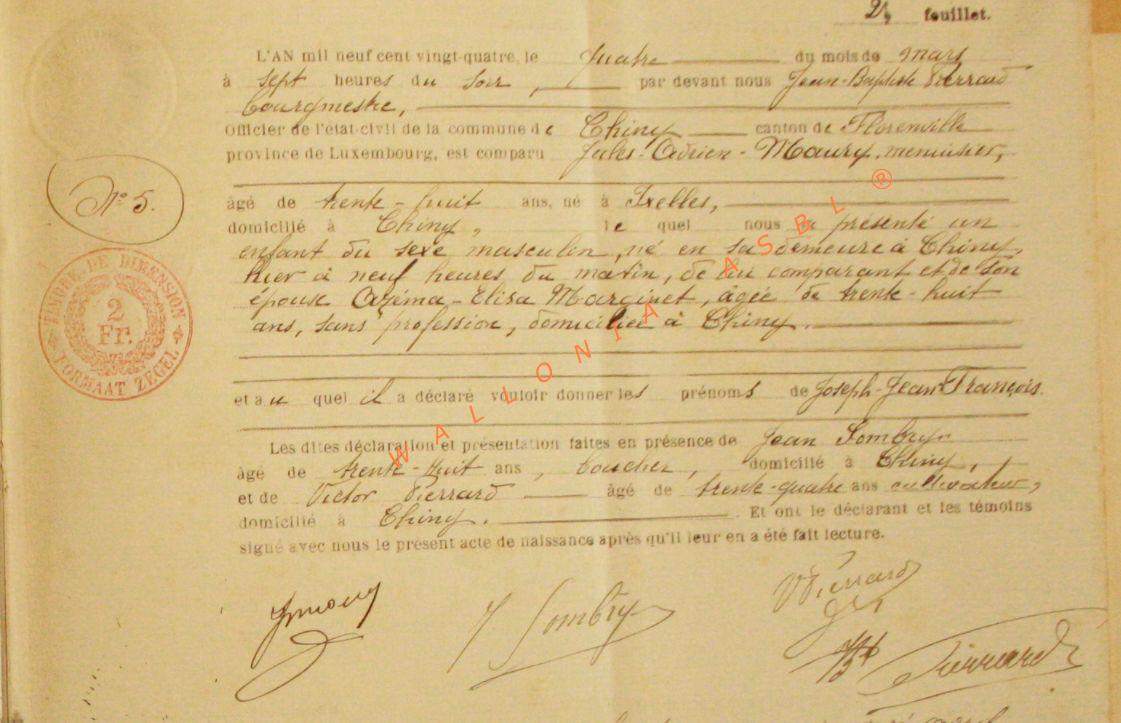 2, feuillet.
L'AN mil neuf cent vingt-quatre, le quatre du mois de mars
à sept heures du soir, par devant nous Jean-Baptiste Pierrard
bourgmestre,
Officier de l'état-civil de la commune de Chiny canton de Florenville
province de Luxembourg, est comparu Jules-Adrien-Maury, menuisier,
N° 5.
âgé de trente-huit ans, né à Ixelles,
domicilié à Chiny, le quel nous a présenté un
enfant du sexe masculin, né en sa demeure à Chiny
hier à neuf heures du matin, de lui comparant et de son
épouse Azéma-Elisa Marginet, âgée de trente-huit
ans, sans profession, domiciliée à Chiny.
TIMBRE DE DIMENSION
2
Fr.
FORMAAT ZEGEL
et au quel il a déclaré vouloir donner les prénoms de Joseph-Jean-François.
Les dites déclaration et présentation faites en présence de Jean Sombryn
âgé de trente-huit ans, boucher, domicilié à Chiny,
et de Victor Pierrard âgé de trente-quatre ans cultivateur,
domicilié à Chiny. Et ont le déclarant et les témoins
signé avec nous le présent acte de naissance après qu'il leur en a été fait lecture.
WALLONIA ASBL ®
J Sombry
V Pierrard
JB Pierrard